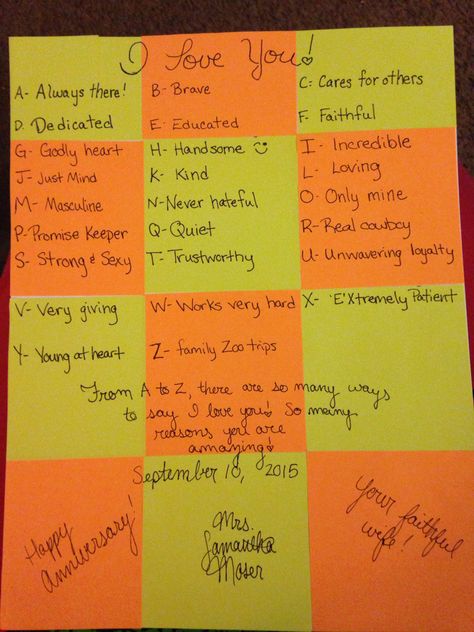 I Love You!
A- Always there!
B- Brave
C- Cares for others
D- Dedicated
E- Educated
F- Faithful
G- Godly heart
H- Handsome
I- Incredible
J- Just Mind
K- Kind
L- Loving
M- Masculine
N- Never hateful
O- Only mine
P- Promise Keeper
Q- Quiet
R- Real cowboy
S- Strong & Sexy
T- Trustworthy
U- Unwavering loyalty
V- Very giving
W- Works very hard
X- 'E'Xtremely Patient
Y- Young at heart
Z- family Zoo trips
From A to Z, there are so many ways
to say I love you! So many
reasons you are
amazing!
September 10, 2015
Happy
Anniversary!
Mrs.
Samantha
Moser
Your faithful
wife!